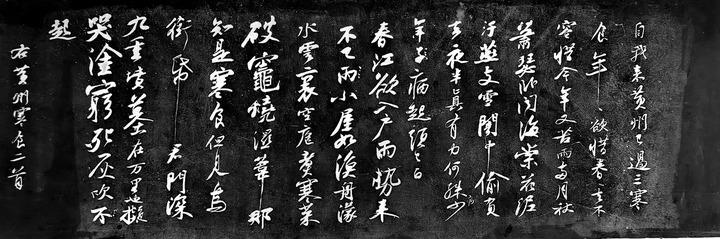 自我來黃州已過三寒
食年〻欲惜春〻去不
容惜今年又苦雨兩月秋
蕭瑟卧聞海棠花泥
汙燕支雪闇中偷負
去夜半真有力何殊少
年子病起頭已白
春江欲入户雨勢来
不已雨小屋如漁舟濛〻
水雲裏空庖煮寒菜
破竈燒濕葦那
知是寒食但見烏
銜帋君門深
九重墳墓在万里也擬
哭塗窮死灰吹不
起
右黄州寒食二首